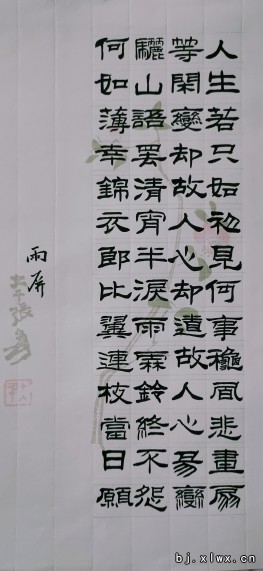 人生若只如初見何事穐風悲畫扇
等閑變却故人心却道故人心易變
驪山語罷清宵半淚雨霖鈴終不怨
何如薄幸錦衣郎比翼連枝當日願
雨屏
大千張爰
bj.xlwx.cn